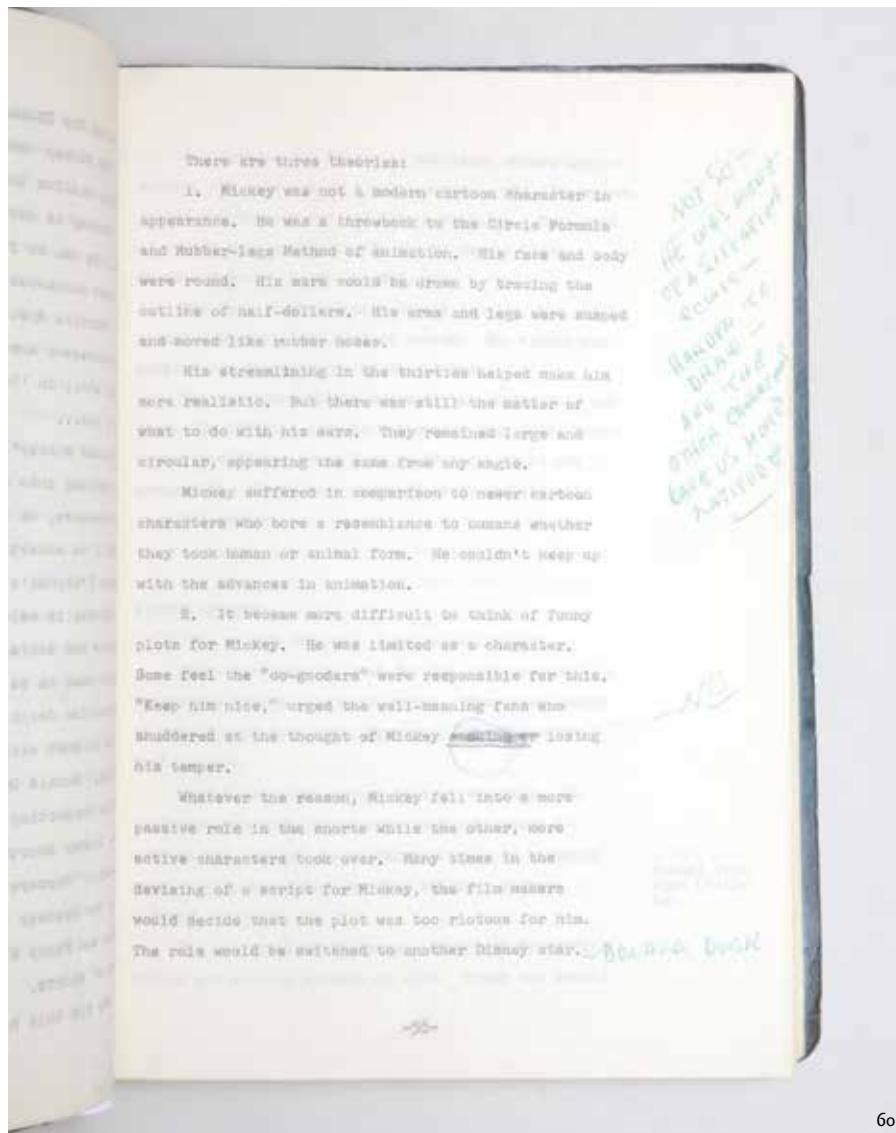 There are three theories:
1. Mickey was not a modern cartoon character in
appearance. He was a throwback to the Circle Formula
and Rubber-legs Method of animation. His face and body
were round. His ears could be drawn by tracing the
outline of half-dollars. His arms and legs were shaped
and moved like rubber hoses.
His streamlining in the thirties helped make him
more realistic. But there was still the matter of
what to do with his ears. They remained large and
circular, appearing the same from any angle.
Mickey suffered in comparison to newer cartoon
characters who bore a resemblance to humans whether
they took human or animal form. He couldn't keep up
with the advances in animation.
2. It became more difficult to think of funny
plots for Mickey. He was limited as a character.
Some feel the "do-gooders" were responsible for this.
"Keep him nice," urged the well-meaning fans who
shuddered at the thought of Mickey smoking or losing
his temper.
Whatever the reason, Mickey fell into a more
passive role in the shorts while the other, more
active characters took over. Many times in the
devising of a script for Mickey, the film makers
would decide that the plot was too riotous for him.
The role would be switched to another Disney star. DONALD DUCK
-55-
NOT SO -
HE WAS MORE
OF A SITUATION
COMIC -
HARDER TO
DRAW -
THE
OTHER CHARACTERS
GAVE US MORE
LATITUDE
NO
60